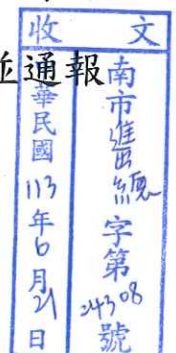 並通報
收文
南市進出總字第24308號
華民國113年6月21日